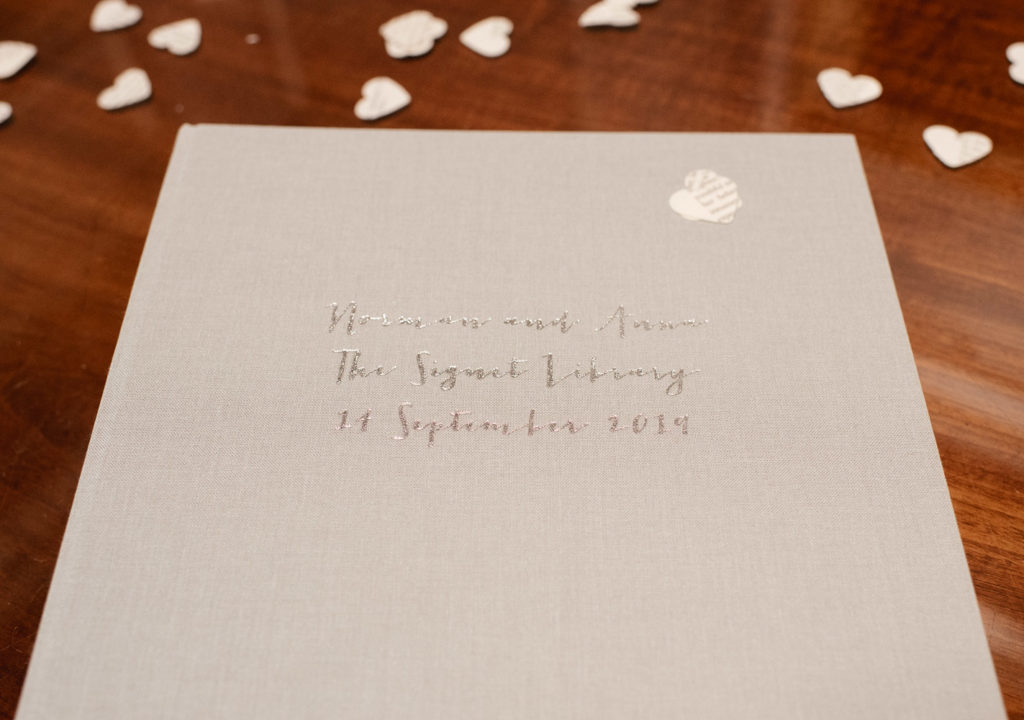 Norman and Anna
The Signet Library
14 September 2019